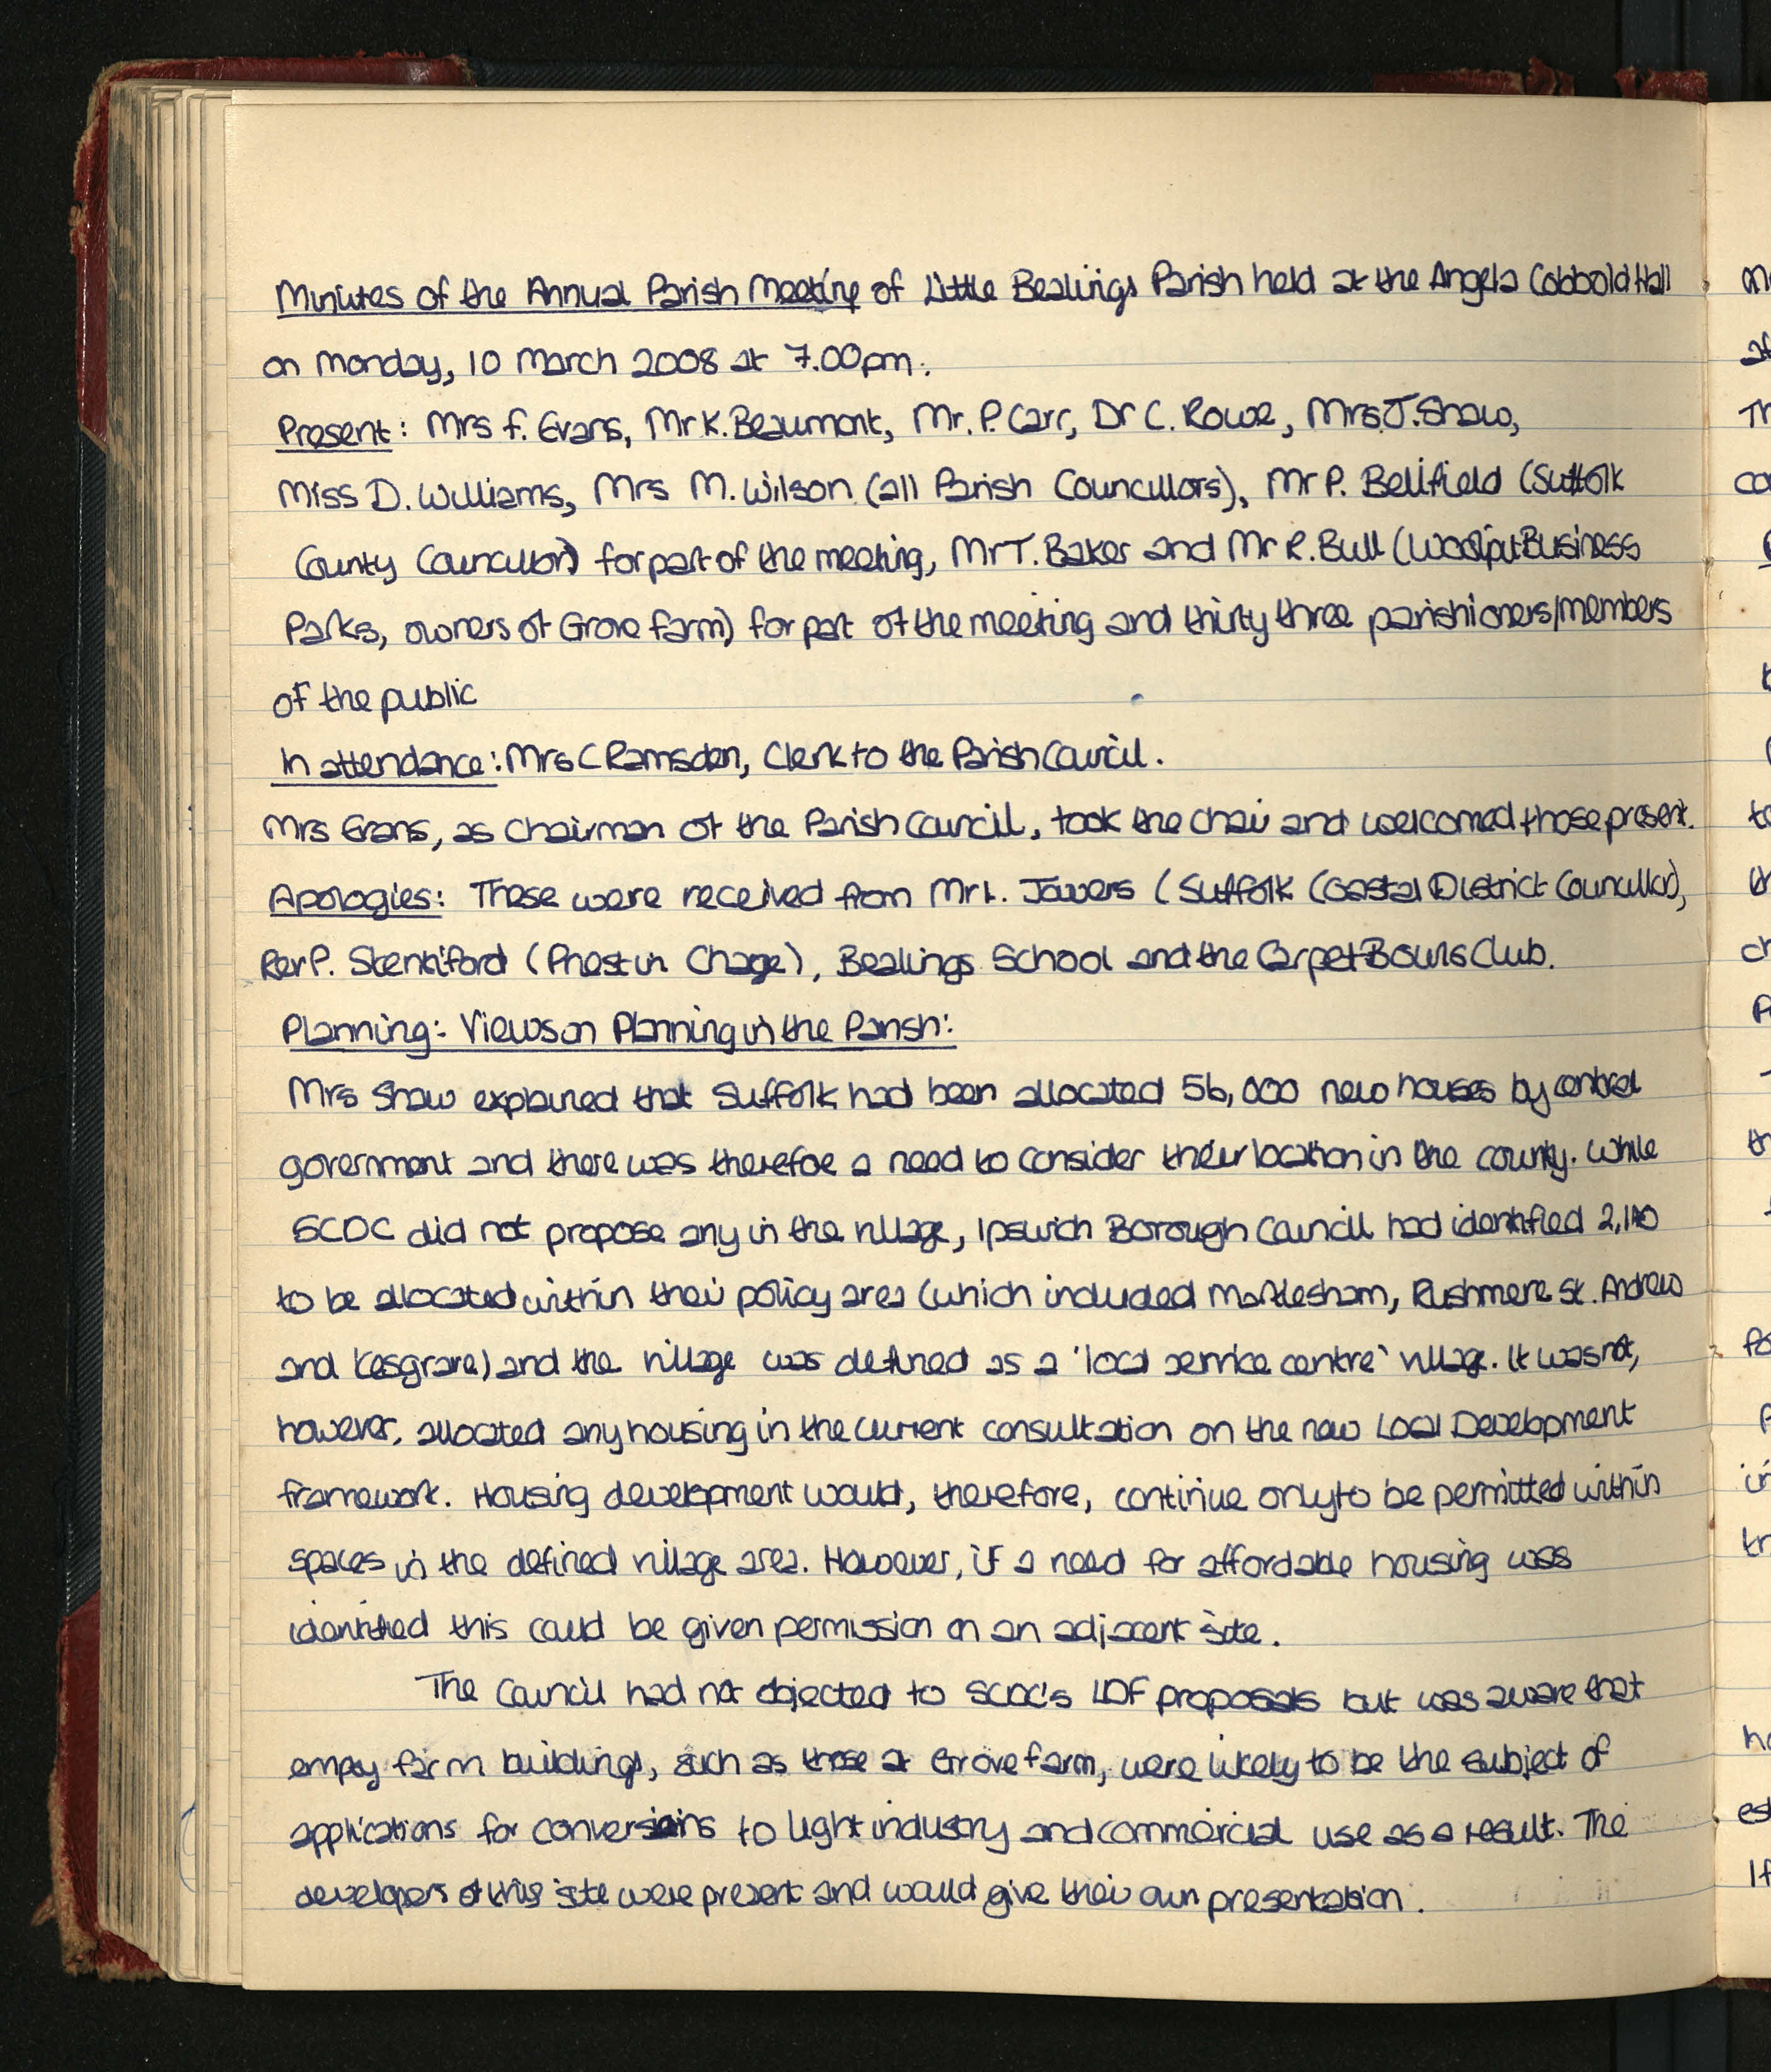 Minutes of the Annual Parish Meeting of Little Bealings Parish held at the Angela Cobbold Hall
on Monday, 10 March 2008 at 7.00pm.
Present: Mrs F. Evans, Mr K. Beaumont, Mr. P. Carr, Dr C. Rowe, Mrs J. Shaw,
Miss D. Williams, Mrs M. Wilson (all Parish Councillors), Mr P. Bellfield (Suffolk
County Councillor) for part of the meeting, Mr T. Baker and Mr R. Bull (Woolpit Business
Parks, owners of Grove Farm) for part of the meeting and thirty three parishioners/members
of the public
In attendance: Mrs C Ramsden, Clerk to the Parish Council.
Mrs Evans, as Chairman of the Parish Council, took the chair and welcomed those present.
Apologies: These were received from Mr L. Jowers (Suffolk Coastal District Councillor),
Rev P. Stentiford (Priest in Chage), Bealings School and the Carpet Bowls Club.
Planning: Views on Planning in the Parish:
Mrs Shaw explained that Suffolk had been allocated 56,000 new houses by central
government and there was therefoe a need to consider their location in the county. While
SCDC did not propose any in the village, Ipswich Borough Council had identified
to be allocated within their policy area (which included Martlesham, Rushmere St. Andrew
and Kesgrave) and the village was defined as a 'local service centre' village. It was not,
however, allocated any housing in the current consultation on the new Local Development
framework. Housing development would, therefore, continue only to be permitted within
spaces in the defined village area. However, if a need for affordable housing was
identified this could be given permission on an adjacent site.
The Council had not objected to SCDC's LDF proposals but was aware that
empty farm buildings, such as those at Grove Farm, were likely to be the subject of
applications for conversions to light industry and commercial use as a result. The
developers of this site were present and would give their own presentation.